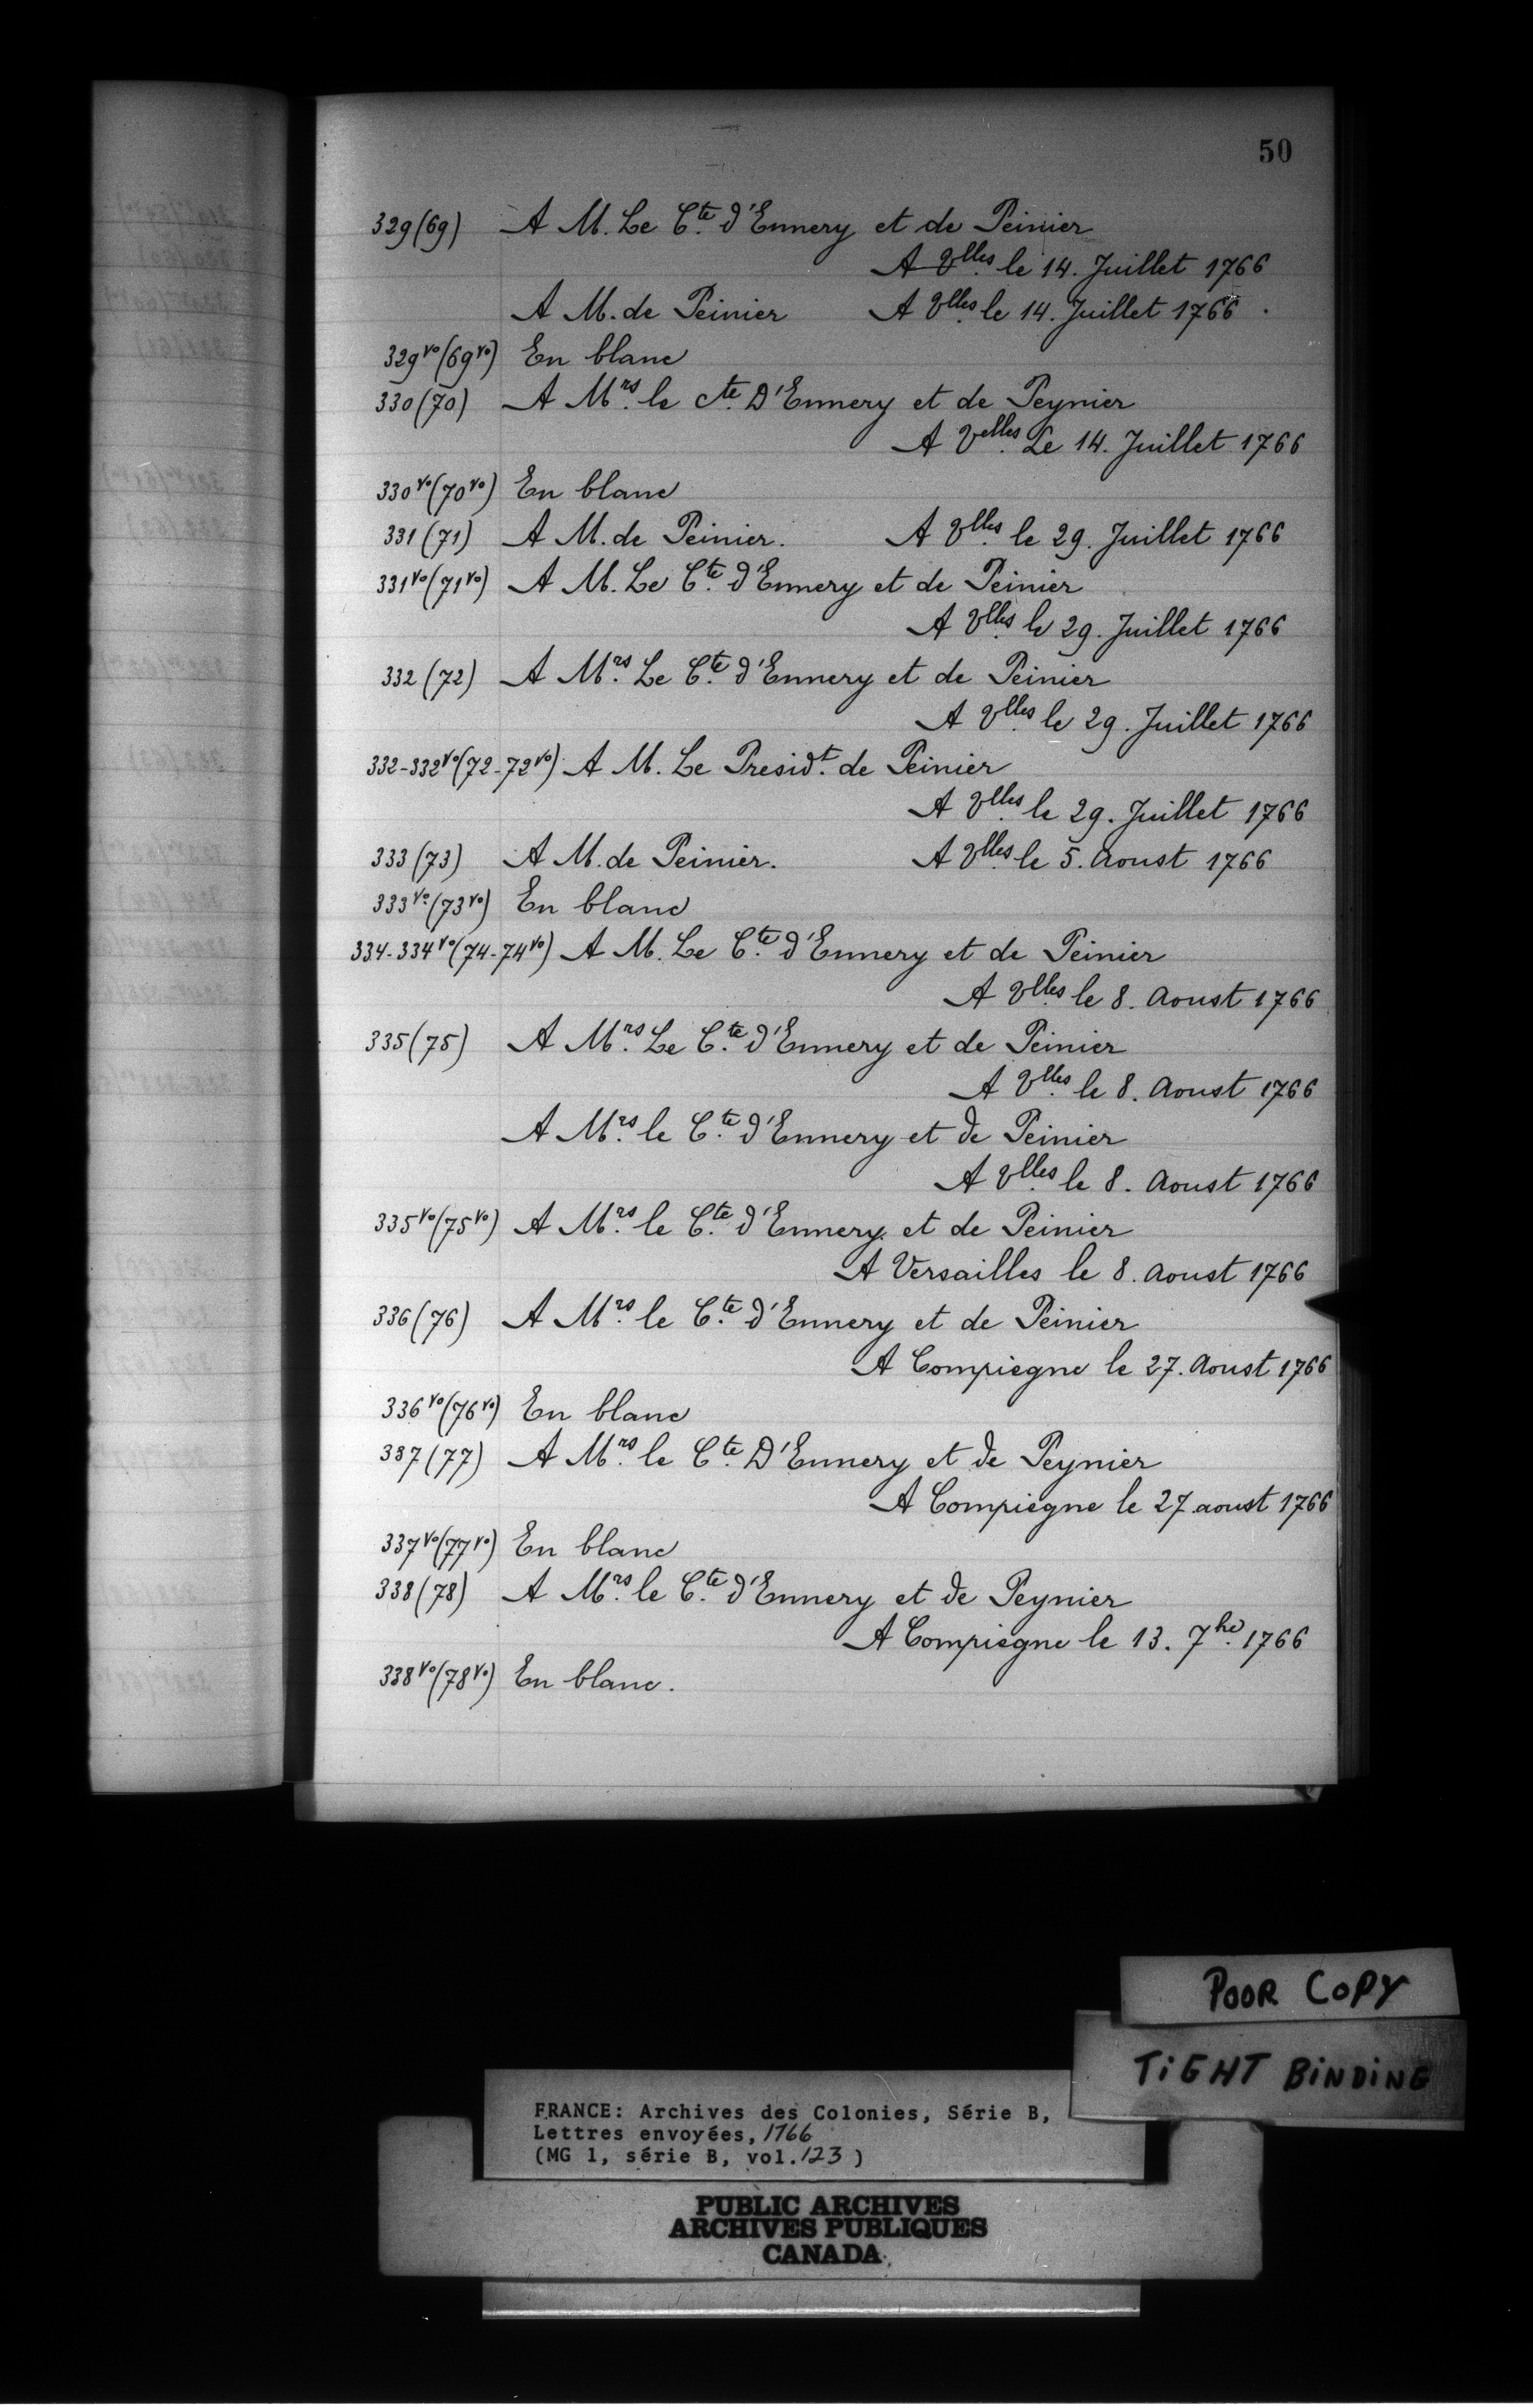 50
329(69) A M. Le C.te d'Ennery et de Peinier
A Vlles le 14. Juillet 1766
A M. de Peinier A Vlles le 14. Juillet 1766.
329vo(69vo) En blanc
330(70) A Mrs. le Cte. D'Ennery et de Peynier
A Velles. Le 14. Juillet 1766
330vo(70vo) En blanc
331(71) A M. de Peinier. A Vlles. le 29. Juillet 1766
331vo(71vo) A M. Le C.te d'Ennery et de Peinier
A Vlles. le 29. Juillet 1766
332(72) A Mrs. Le C.te d'Ennery et de Peinier
A Vlles. le 29. Juillet 1766
332-332vo(72-72vo) A M. Le Presidt. de Peinier
A Vlles. le 29. Juillet 1766
333(73) A M. de Peinier. A Vlles. le 5. Aoust 1766
333vo(73vo) En blanc
334-334vo(74-74vo) A M. Le C.te d'Ennery et de Peinier
A Vlles. le 8. Aoust 1766
335(75) A Mrs. Le C.te d'Ennery et de Peinier
A Vlles. le 8. Aoust 1766
A Mrs. le C.te d'Ennery et de Peinier
A Vlles. le 8. Aoust 1766
335vo(75vo) A Mrs. le C.te d'Ennery et de Peinier
A Versailles le 8. Aoust 1766
336(76) A Mrs. le C.te d'Ennery et de Peinier
A Compiegne le 27. Aoust 1766
336vo(76vo) En blanc
337(77) A Mrs. le C.te D'Ennery et de Peynier
A Compiegne le 27. aoust 1766
337vo(77vo) En blanc
338(78) A Mrs. le C.te d'Ennery et de Peynier
A Compiegne le 13. 7bre. 1766
338vo(78vo) En blanc.
POOR COPY
TIGHT BINDING
FRANCE: Archives des Colonies, Série B,
Lettres envoyées, 1766
(MG 1, série B, vol. 123 )
PUBLIC ARCHIVES
ARCHIVES PUBLIQUES
CANADA